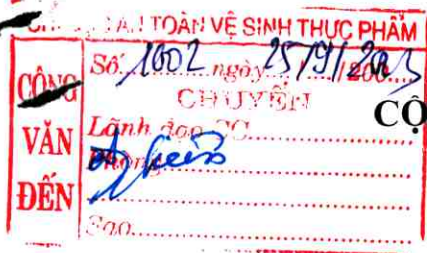 TOÀN VỆ SINH THỰC PHẨM
CÔNG VĂN ĐẾN
Số 1002 ngày 25/9/200
CHUYỂN
CỘ
Lãnh đạo CC
Phòng
Sao